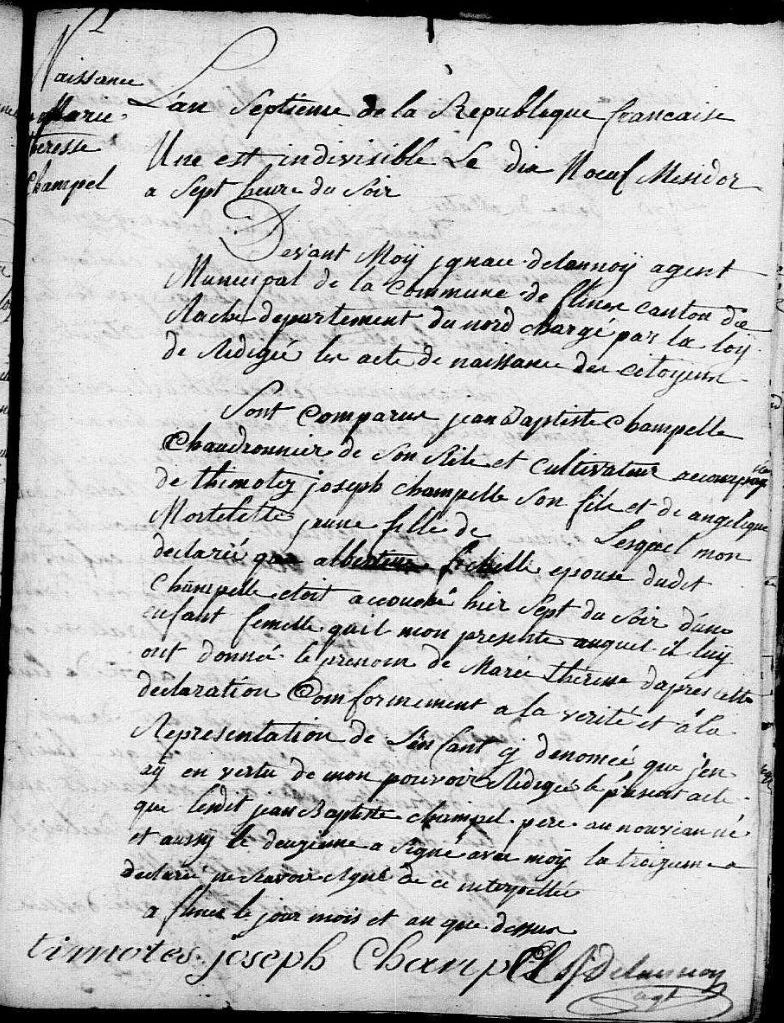 Naissance
Marie
theresse
Champel
L'an Septieme de la Republeque francaise
Une est indivisible Le dix Noeuf Mesidor
a Sept heure du Soir
Devant Moÿ jgnace delannoÿ agent
Municipal de la Commune de flines canton de
Rache departement du nord chargé par la loÿ
de Redigée les acte de naissance des Citoyens
Sont Comparue jean Baptiste Champelle
Chaudronnier de Son Stile et Cultivateur
de thimotez joseph Champelle Son fils et de angelique
Mortelette jeune fille de Lesquel mon
declaré que epouse dudit
Champelle etoit accouché hier Sept du Soir d'une
enfant femelle quil mon presenté auquel il luy
ont donné le prenom de Marie therese dapres cette
declaration Comformement a la verité et a la
Representation de l'enfant cj denomcé que j'en
aÿ en vertu de mon pouvoir Redigé le present acte
que ledit jean Baptiste Champel pere au nouveau né
et aussy le deuzieme a Signé avec moÿ la troizieme a
declaré ne Savoir Signé de ce interpellée
a flines le jour mois et an que dessus
timotes joseph Champel jj Delannoy
agt